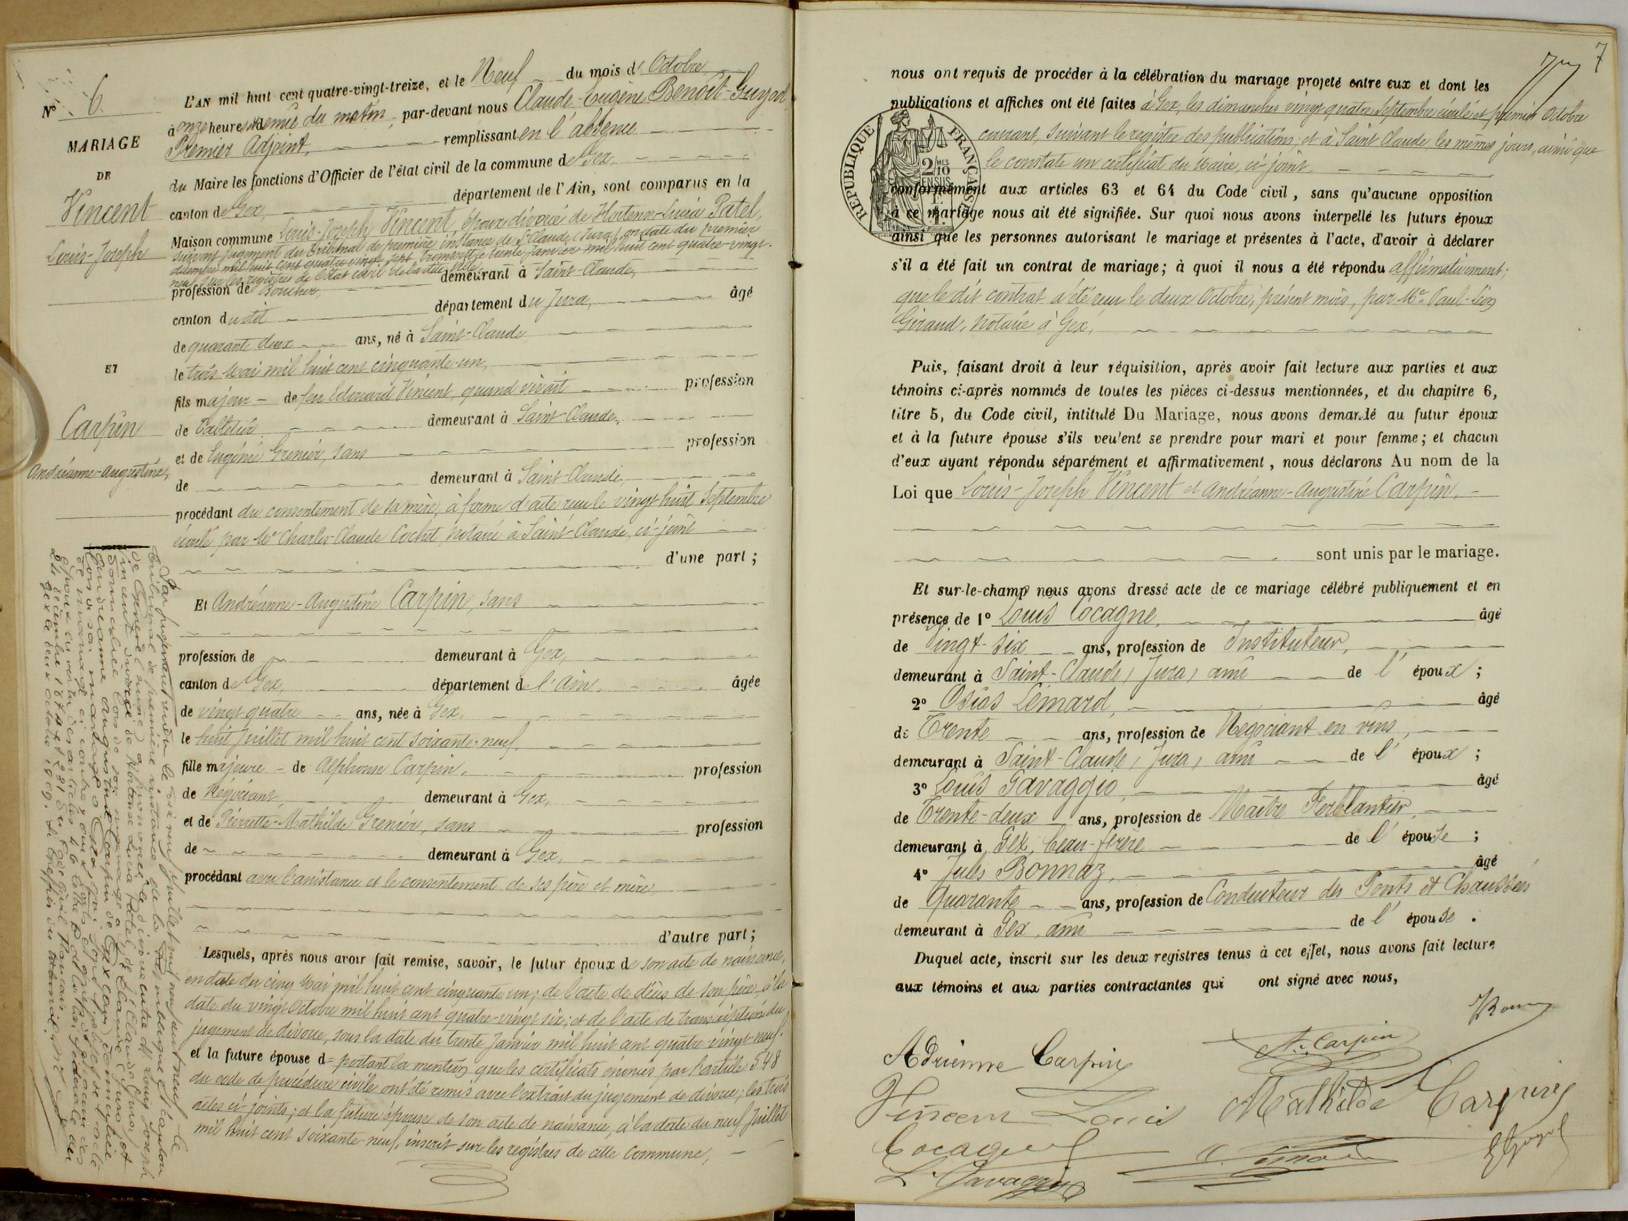 N° 6.
MARIAGE
DE
Vincent
Louis-Joseph
ET
Carpin
Andréanne-Augustine,
L'AN mil huit cent quatre-vingt-treize, et le Neuf du mois d'Octobre
à onze heures du matin, par-devant nous Claude-Eugène Benoît-Guyod
Premier Adjoint, remplissant en l'absence
du Maire les fonctions d'Officier de l'état civil de la commune de Gex,
canton de Gex, département de l'Ain, sont comparus en la
Maison commune Louis-Joseph Vincent, époux divorcé de Hortense-Lucie Patel,
suivant jugement du Tribunal de première instance de St Claude (Jura), en date du premier
décembre mil huit cent quatre-vingt huit, transcrit le trente janvier mil huit cent quatre-vingt-
neuf, sur les registres de l'état civil de la dite ville
profession de Boucher, demeurant à Saint-Claude,
canton du dit département du Jura, âgé
de quarante deux ans, né à Saint-Claude
le trois mai mil huit cent cinquante un,
fils majeur de feu Edouard Vincent, quand vivait profession
de Batelier demeurant à Saint-Claude,
et de Eugénie Grenier, sans profession
de demeurant à Saint-Claude,
procédant du consentement de sa mère, à forme d'acte reçu le vingt huit Septembre
écoulé, par Me Charles-Claude Cochet, notaire à Saint-Claude, ci-joint
d'une part;
Et Andréanne-Augustine Carpin, sans
profession de demeurant à Gex,
canton de Gex, département de l'Ain, âgée
de vingt quatre ans, née à Gex,
le huit Juillet mil huit cent soixante-neuf,
fille majeure de Alphonse Carpin, profession
de Négociant demeurant à Gex,
et de Pierrette-Mathilde Grenier, sans profession
de demeurant à Gex,
procédant avec l'assistance et le consentement de ses père et mère,
d'autre part;
Lesquels, après nous avoir fait remise, savoir, le futur époux de son acte de naissance,
en date du cinq mai mil huit cent cinquante un; de l'acte de décès de son père, à la
date du vingt Octobre mil huit cent quatre-vingt six; et de l'acte de transcription du
jugement de divorce, sous la date du trente Janvier mil huit cent quatre-vingt-neuf,
et la future épouse d= portant la mention que les certificats énoncés par l'article 548
du code de procédure civile ont été remis avec l'extrait du jugement de divorce; les trois
actes ci-joints; et la future épouse de son acte de naissance, à la date du neuf Juillet
mil huit cent soixante-neuf, inscrit sur les registres de cette Commune,
Par jugement rendu le dix neuf juillet mil neuf cent neuf le
tribunal de première instance
de Gex
a prononcé le divorce entre Louis Joseph
Vincent, divorcé de Hortense Lucie Patel, de St Claude (Jura)
domicilié lors de son mariage à St Claude (Jura) et
Andréanne Augustine Carpin de Gex (Ain)
Gex, le deux octobre 1909. Le Greffier du tribunal,
7
nous ont requis de procéder à la célébration du mariage projeté entre eux et dont les
publications et affiches ont été faites à Gex, les dimanches vingt quatre Septembre écoulé et premier Octobre
courant, suivant le registre des publications, et à Saint-Claude les mêmes jours, ainsi que
le constate un certificat du Maire, ci-joint.
RÉPUBLIQUE FRANÇAISE
conformément aux articles 63 et 64 du Code civil, sans qu'aucune opposition
à ce mariage nous ait été signifiée. Sur quoi nous avons interpellé les futurs époux
ainsi que les personnes autorisant le mariage et présentes à l'acte, d'avoir à déclarer
s'il a été fait un contrat de mariage; à quoi il nous a été répondu affirmativement;
que le dit contrat a été reçu le deux Octobre, présent mois, par Me Paul-Léon
Giraud, notaire à Gex.
Puis, faisant droit à leur réquisition, après avoir fait lecture aux parties et aux
témoins ci-après nommés de toutes les pièces ci-dessus mentionnées, et du chapitre 6,
titre 5, du Code civil, intitulé Du Mariage, nous avons demandé au futur époux
et à la future épouse s'ils veulent se prendre pour mari et pour femme; et chacun
d'eux ayant répondu séparément et affirmativement, nous déclarons Au nom de la
Loi que Louis-Joseph Vincent et Andréanne-Augustine Carpin,
sont unis par le mariage.
Et sur-le-champ nous avons dressé acte de ce mariage célébré publiquement et en
présence de 1° Louis Cocagne, âgé
de Vingt-six ans, profession de Instituteur,
demeurant à Saint-Claude, Jura, ami de l'époux;
2° Osias Lemard, âgé
de Trente ans, profession de Négociant en vins,
demeurant à Saint-Claude, Jura, ami de l'époux;
3° Louis Favaggio, âgé
de Trente-deux ans, profession de Maître Ferblantier,
demeurant à Gex, beau-frère de l'épouse;
4° Jules Bonnaz, âgé
de Quarante ans, profession de Conducteur des Ponts et Chaussées
demeurant à Gex, ami de l'épouse.
Duquel acte, inscrit sur les deux registres tenus à cet effet, nous avons fait lecture
aux témoins et aux parties contractantes qui ont signé avec nous,
Adrienne Carpin
A. Carpin
Vincent Louis
Mathilde Carpin
Cocagne
L. Favaggio